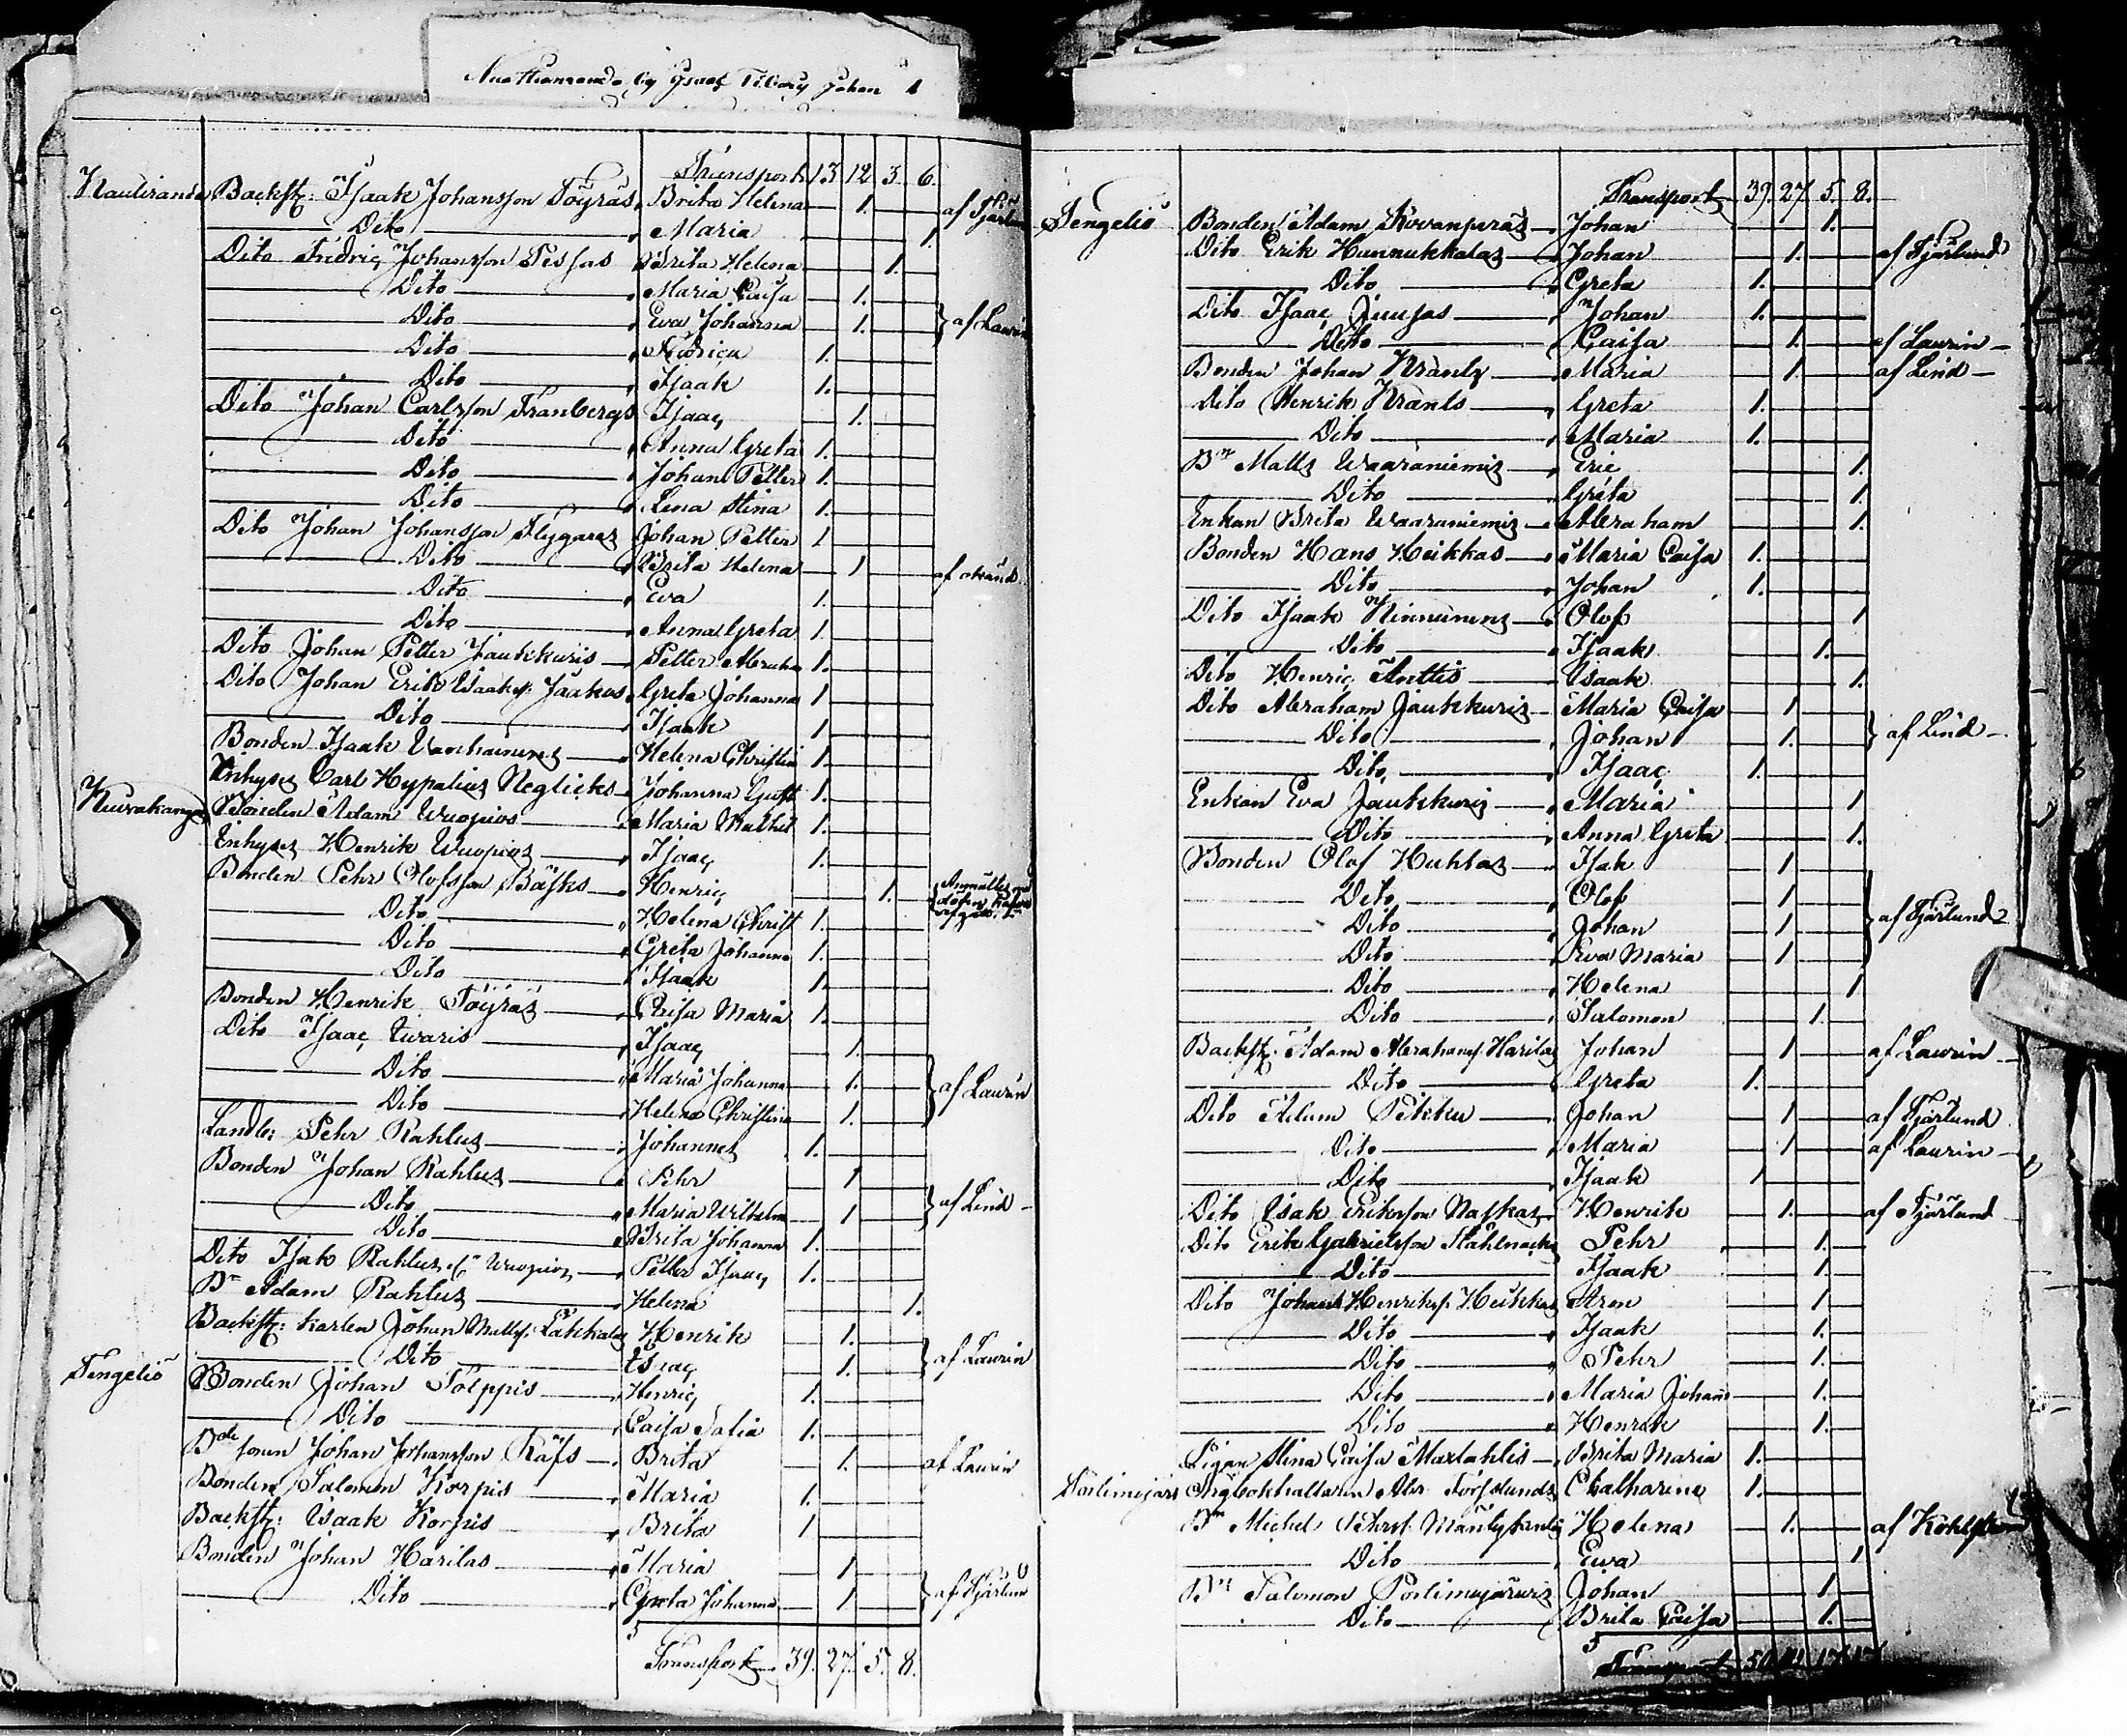 by Isaac Johan 1
Transport 13 12 3 6.
Nautiranda Backst: Isaak Johansson Töyräs, Brita Helena 1. af Fjärlun
Dito, Maria 1.
Dito Fredric Johansson Pessas Brita Helena 1.
Dito, Maria Caisa 1.
Dito, Eva Johanna 1. } af Laurin
Dito, Fredrica 1.
Dito, Isaak 1.
Dito Johan Carlsson Stranbergs Isaac 1.
Dito, Anna Greta 1.
Dito, Johan Petter 1.
Dito, Lena Stina 1.
Dito Johan Johansson Flygares Johan Petter 1
Dito, Brita Helena 1 af
Dito, Eva 1.
Dito, Anna Greta 1.
Dito Johan Petter Jaukkuris, Petter Abraha 1.
Dito Johan Erik Isaaks: Jaakos, Greta Johanna 1
Dito, Isaak 1
Bonden Isaak Vanhainens, Helena Christin 1.
Inhyses Carl Hypalius Neglicks, Johanna Gust 1.
Kuivakangas Bonden Adam Wuopios, Maria Mathil 1.
Inhyses Henrik Wuopios, Isaac 1.
Bonden Pehr Olofsson Bäsks, Henric 1.
Dito, Helena Christ 1.
Dito, Greta Johanna 1.
Dito, Isaak 1.
Bonden Henrik Töyräs, Caisa Maria 1.
Dito Isaac Kvaris, Isaac 1.
Dito, Maria Johanna 1. } af Laurin
Dito, Helena Christina 1.
Landb: Pehr Rahlus, Johannes 1.
Bonden Johan Rahlus, Pehr 1
Dito, Maria Wilhelm 1 } af Lind
Dito, Brita Johanna 1.
Dito Isak Rahlus, Wuopios, Petter Isaac 1.
Bn Adam Rahlus, Helena 1.
Backst: karlen Johan Matts: Lakkalas Henrik 1.
Dito Isaac 1. } af Laurin
Tengeliö Bonden Johan Tolppis, Henric 1.
Dito, Caisa Salia 1.
Bdesonen Johan Johansson Räfs, Brita 1. af Laurin
Bonden Salomon Korpis, Maria 1.
Backst: Isaak Korpis, Brita 1
Bonden Johan Harilas, Maria 1
Dito, Greta Johanna 1. } af Fjärlun
Transport 39. 27. 5. 8.
Transport 39. 27. 5. 8.
Tengeliö Bonden Adam Rovanperäs, Johan 1.
Dito Erik Hunnukkalas, Johan 1. af Fjärlund
Dito, Greta 1.
Dito Isaac Juusas, Johan 1.
Dito, Caisa 1. af Laurin
Bonden Johan Krants, Maria 1. af Lind
Dito Henrik Krants, Greta 1.
Dito, Maria 1.
Bn Matts Waaraniemis, Eric 1.
Dito, Greta 1.
Enkan Brita Waaraniemis, Abraham 1.
Bonden Hans Heikkas, Maria Caisa 1.
Dito, Johan 1.
Dito Isaak Niemimens, Olof 1
Dito, Isaak 1.
Dito Henric Anttis, Isaak 1.
Dito Abraham Jaukkuris, Maria Caisa 1
Dito, Johan 1. } af Lind
Dito, Isaac 1.
Enkan Eva Jaukkuris, Maria 1
Dito, Anna Greta 1.
Bonden Olof Huhtas, Isak 1
Dito, Olof 1
Dito, Johan 1 } af Fjärlund
Dito, Eva Maria 1
Dito, Helena 1
Dito, Salomon 1.
Backst: Adam Abrahams: Harilas Johan 1 af Laurin
Dito, Greta 1.
Dito Adam Pekku, Johan 1 af Fjärlund
Dito, Maria 1 af Laurin
Dito, Isaak 1
Dito Isak Eriksson Naskas, Henrik 1. af Fjärlund
Dito Erik Gabrielsson Stålnacks, Pehr 1.
Dito, Isaak 1.
Dito Johan Henriks: Heikkas, Aron 1
Dito, Isaak 1.
Dito, Pehr 1.
Dito, Maria Johan 1.
Dito, Henrik 1.
Pigan Stina Caisa Maxlahtis, Brita Maria 1.
Portimojärvi Abr Forslunds, Chatharina 1.
Bn Michel Pehrs: Mäntyrantas, Helena 1. af Kohlström
Dito, Ewa 1
Bn Salomon Portimojärwis, Johan 1
Dito, Brita Caisa 1.
Transport